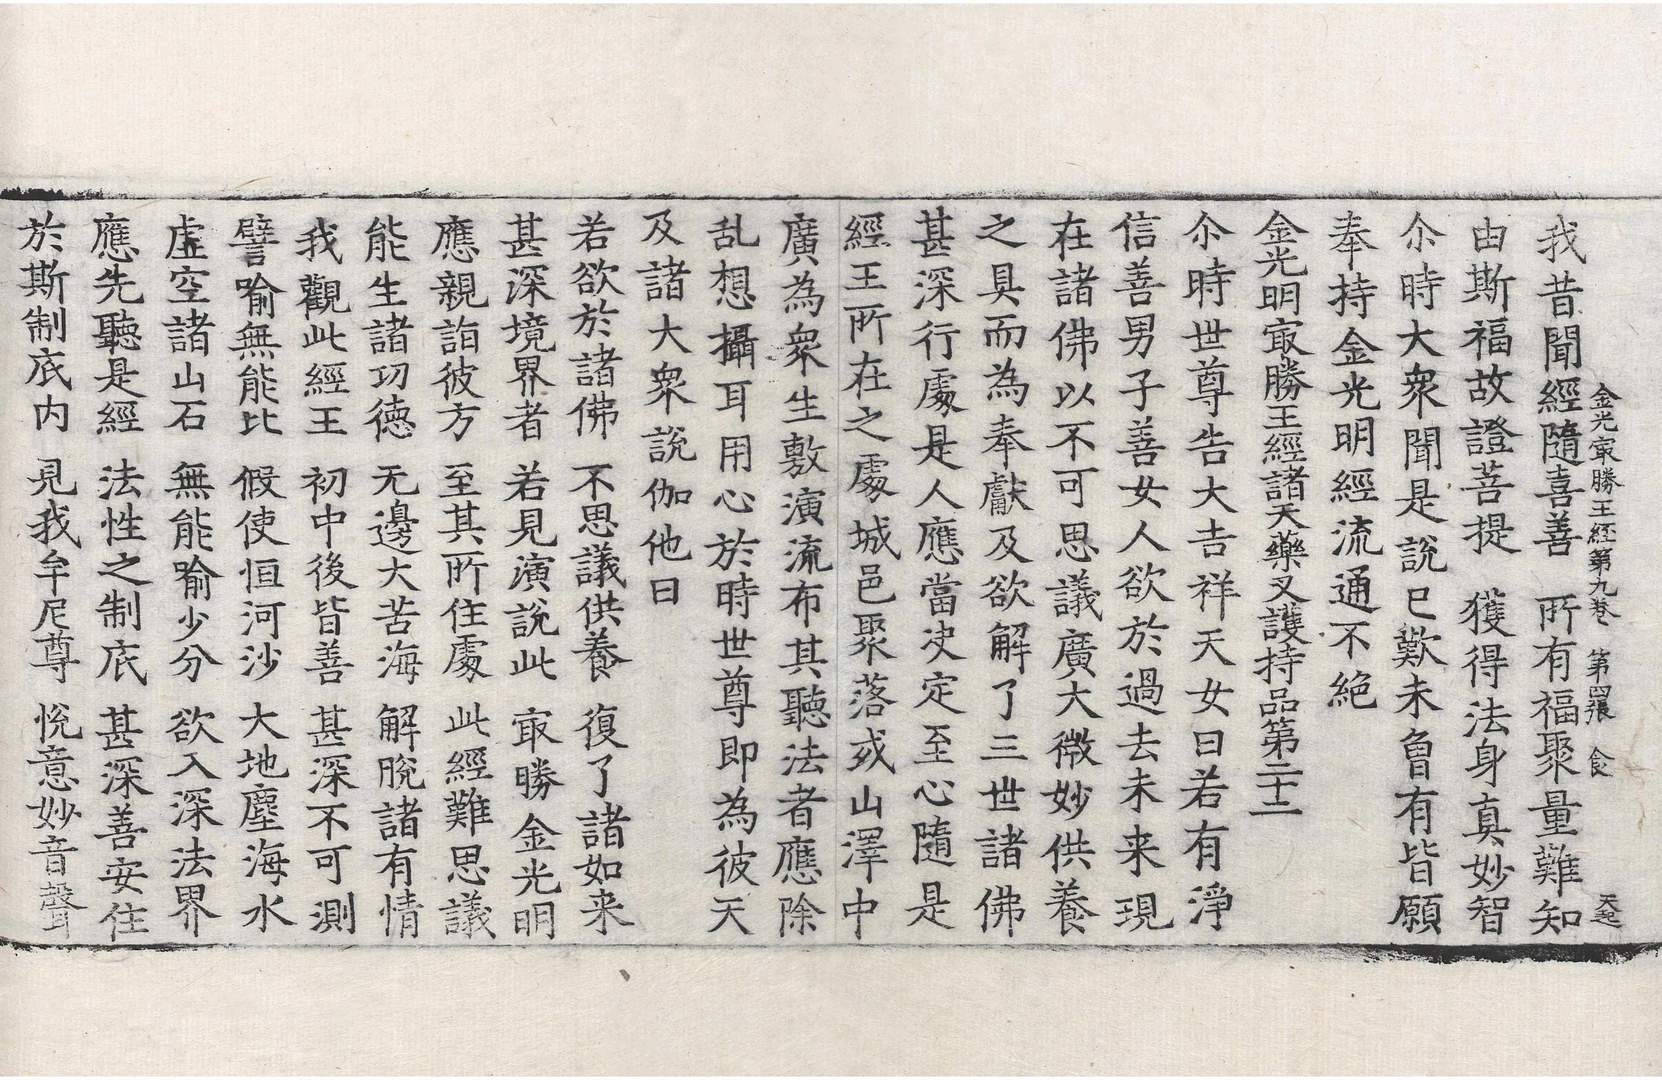 金光㝡勝王経第九巻 第四張 食 天起
我昔聞經隨喜善 所有福聚量難知
由斯福故證菩提 獲得法身真妙智
尒時大衆聞是說已歎未曾有皆願
奉持金光明經流通不絶
金光明㝡勝王經諸天藥叉護持品第二十二
尒時世尊告大吉祥天女曰若有淨
信善男子善女人欲於過去未来現
在諸佛以不可思議廣大微妙供養
之具而為奉獻及欲解了三世諸佛
甚深行處是人應當决定至心隨是
經王所在之處城邑聚落或山澤中
廣為衆生敷演流布其聽法者應除
乱想攝耳用心於時世尊即為彼天
及諸大衆說伽他曰
若欲於諸佛 不思議供養 復了諸如来
甚深境界者 若見演說此 㝡勝金光明
應親詣彼方 至其所住處 此經難思議
能生諸功德 无邊大苦海 解脫諸有情
我觀此經王 初中後皆善 甚深不可測
譬喻無能比 假使恒河沙 大地塵海水
虛空諸山石 無能喻少分 欲入深法界
應先聽是經 法性之制底 甚深善安住
於斯制底内 見我牟尼尊 悅意妙音聲